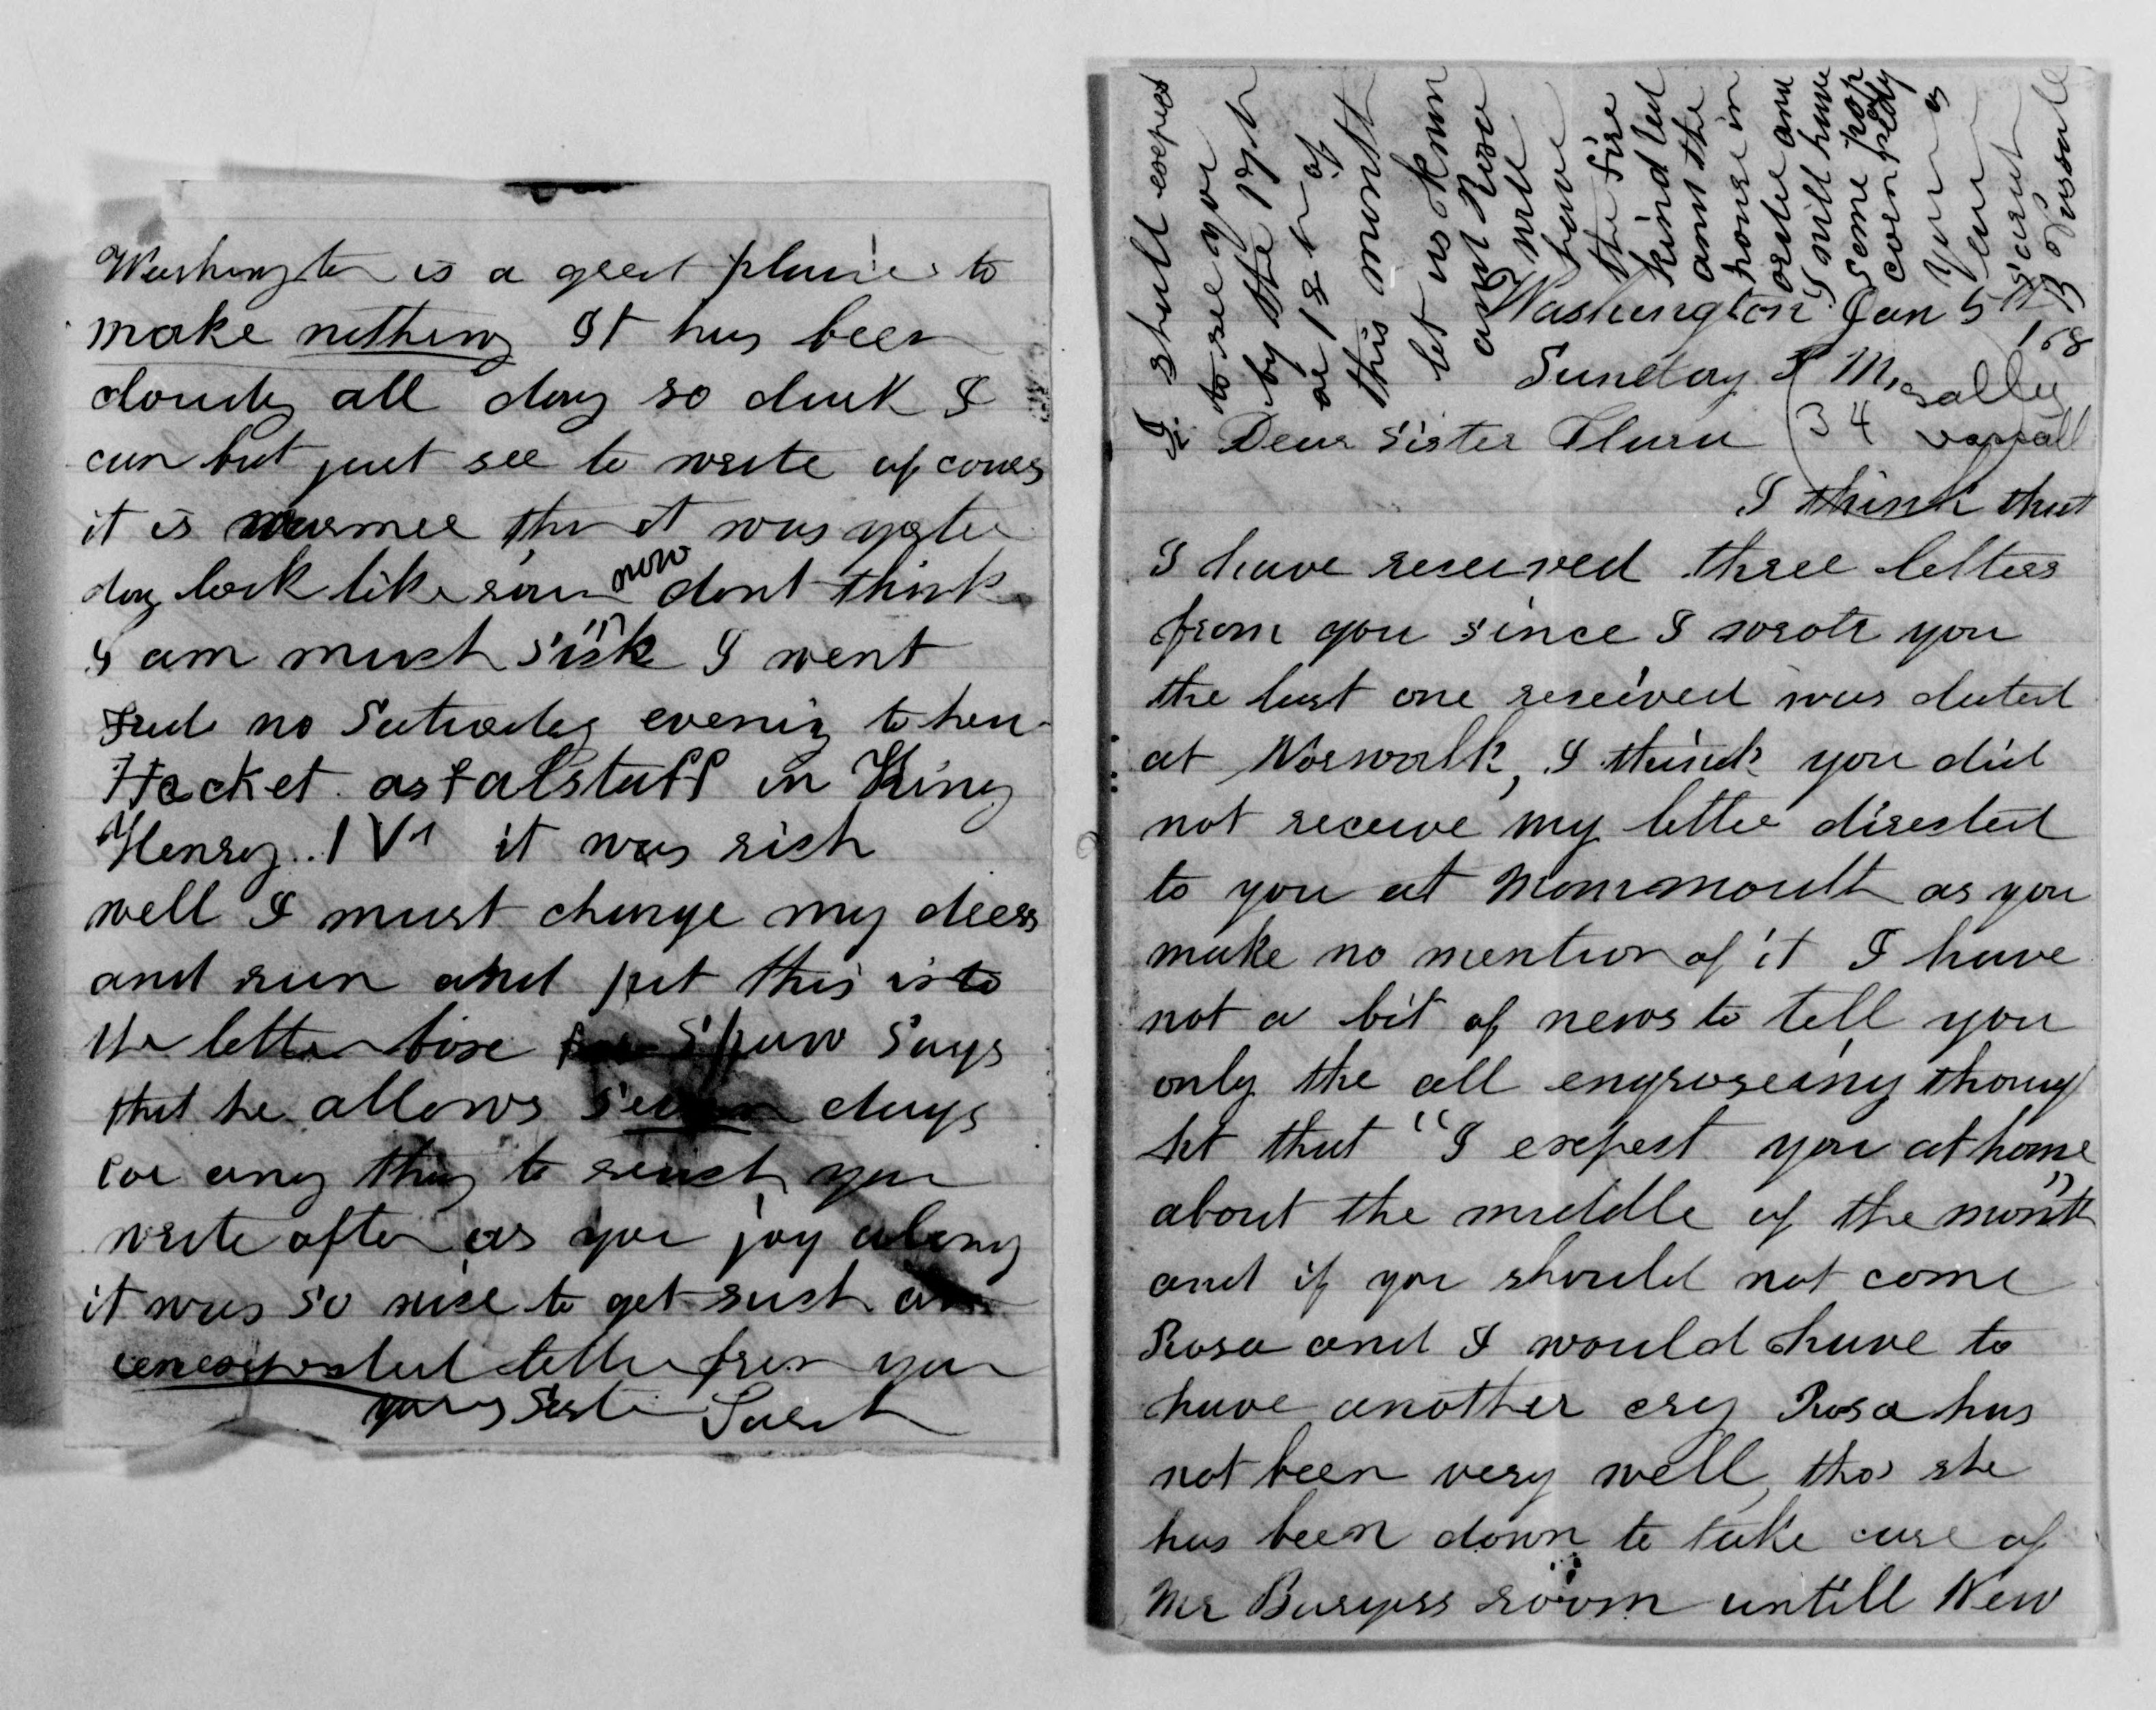 Washington is a great place to
make nothing It has been
cloudy all day so dark I
can but just see to write of cours
it is warmer than it was yester
day look like rain now dont think
I am much "sick" I went
no Saturday evening to hear
Hacket as Falstaff in King
Henry IV it was rich
well I must change my dress
and run and put this into
the letter box Spaw says
that he allows seven days
for any thing to reach you
write often as you jog along
it was so nice to get such an
unexpected letter from you
yours Sister Sarah
I shall expect
to see you
by the 17th
or 18th of
this month
let us know
and Rosa
will
have
the fire
kindled
and the
house in
order and
I will have
some pop
corn ready
Yours
Aunt
B Vassall
Washington Jan 5th
/68
Sunday P M.
Sally
34 Vassall
Dear Sister Clara
I think that
I have received three letters
from you since I wrote you
the last one received was dated
at Norwalk, I think you did
not receive my letter directed
to you at Monmouth as you
make no mention of it I have
not a bit of news to tell you
only the all engroseing thoug
ht that "I expect you at home
about the middle of the month"
and if you should not come
Rosa and I would have to
have another cry Rosa has
not been very well, tho' she
has been down to take care of
Mr Burgess room untill New